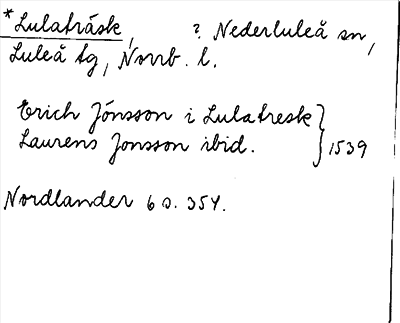 *Lulaträsk, ? Nederluleå sn,
Luleå tg, Norrb. l.
Erich Jónsson i Lulatresk }
Laurens Jonsson ibid. } 1539
Nordlander 6 s. 354.